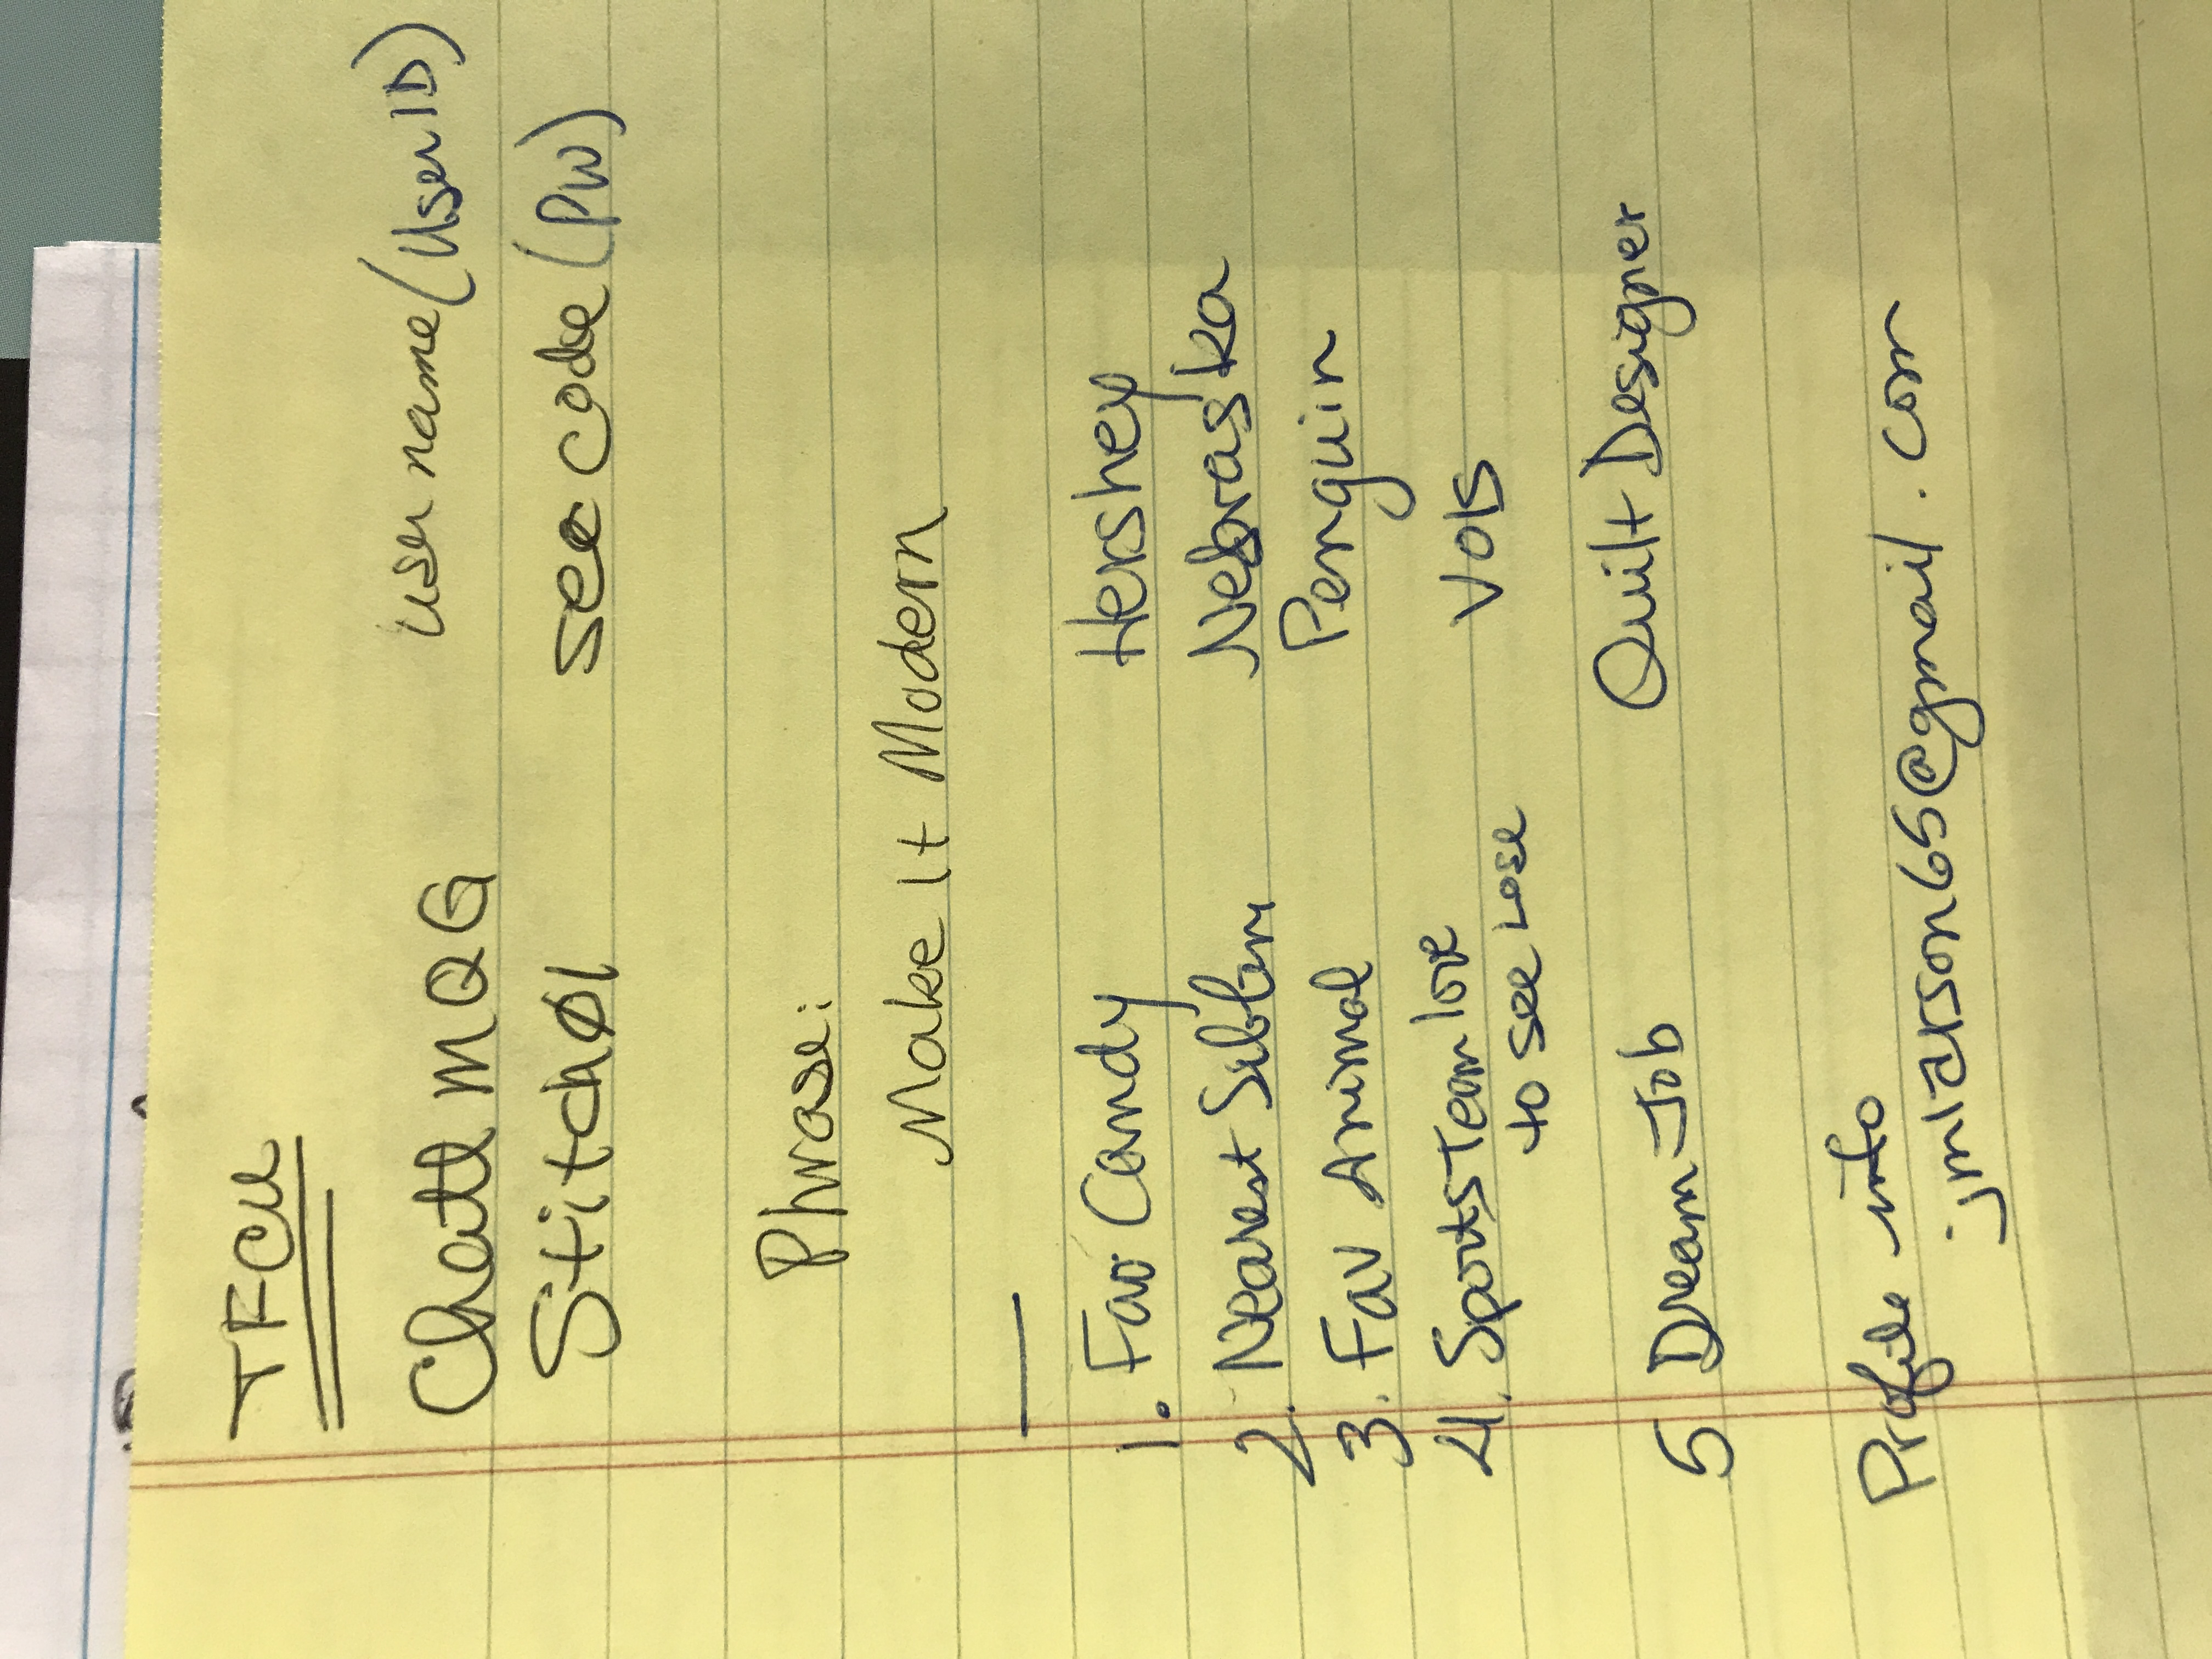 TFCU
ChattMQG user name (User ID)
Stitch01 sec code (PW)
Phrase:
Make It Modern
1. Fav. Candy Hershey
2. Nearest Sibling Nebraska
3. Fav Animal Penguin
4. Sports Team love Vols
to see Lose
5 Dream Job Quilt Designer
Profile info
jmlarson65@gmail.com